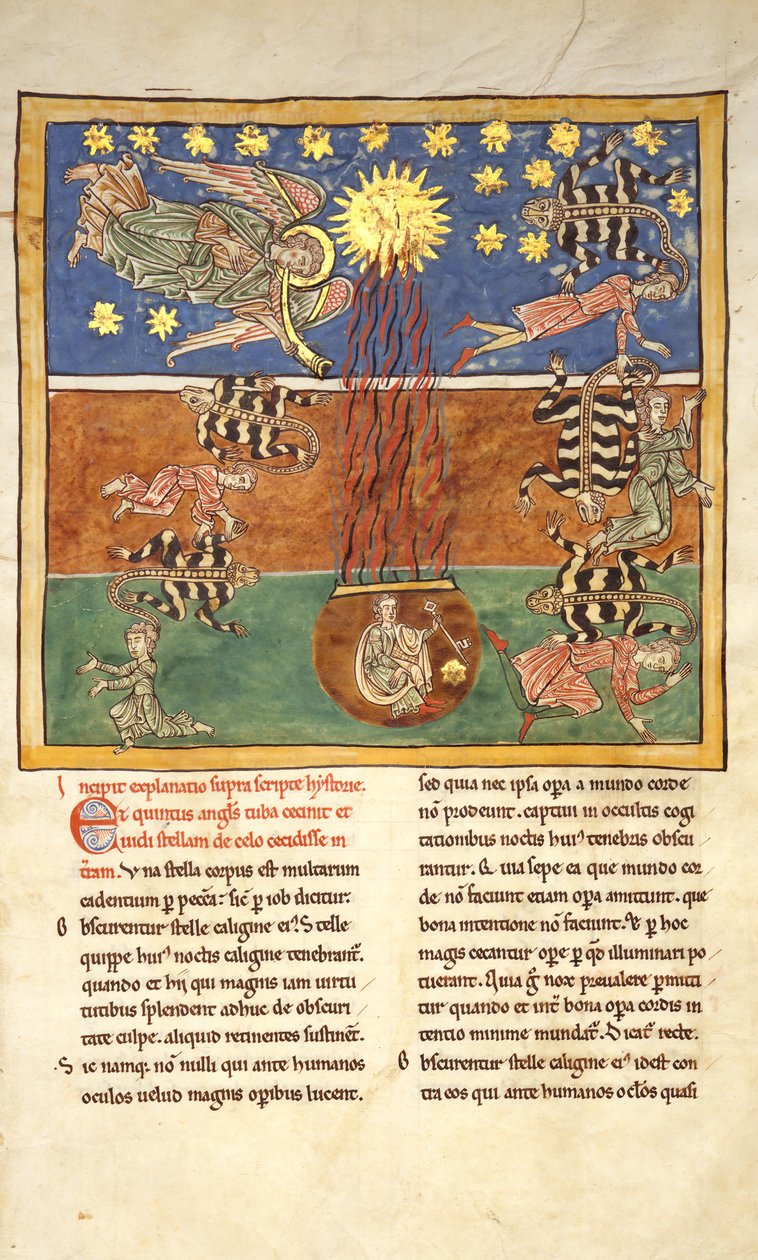 Incipit explanatio supra scripte hystorie.
Et quintus angl's tuba cecinit et
uidi stellam de celo cecidisse in
t̄ram. Vna stella corpus est multarum
cadentium p̱ pecc̄a: sic̄ p̱ iob dicitur.
Obscurentur stelle caligine eiꝰ. Stelle
quippe huiꝰ noctis caligine tenebrant̄.
quando et hij qui magnis iam uirtu
tutibus splendent adhuc de obscuri
tate culpe. aliquid retinentes sustinēt.
Sic namq. nō nulli qui ante humanos
oculos uelud magnis oꝑibus lucent.
sed quia nec ipsa oꝑa a mundo corde
nō prodeunt. captiui in occultis cogi
tationibus noctis huiꝰ tenebris obscu
rantur. Quia sepe ea que mundo cor
de nō faciunt etiam oꝑa amittunt. que
bona intentione nō faciunt. Et ꝑ hoc
magis cecantur oꝑe ꝑ qd̄ illuminari po
tuerant. Quia g̊ nox preualere ꝑmitti
tur quando et int̄ bona oꝑa cordis in
tentio minime mundat̄. Dicat̄ recte.
Obscurentur stelle caligine eiꝰ idest con
tra eos qui ante humanos oc̄los quasi